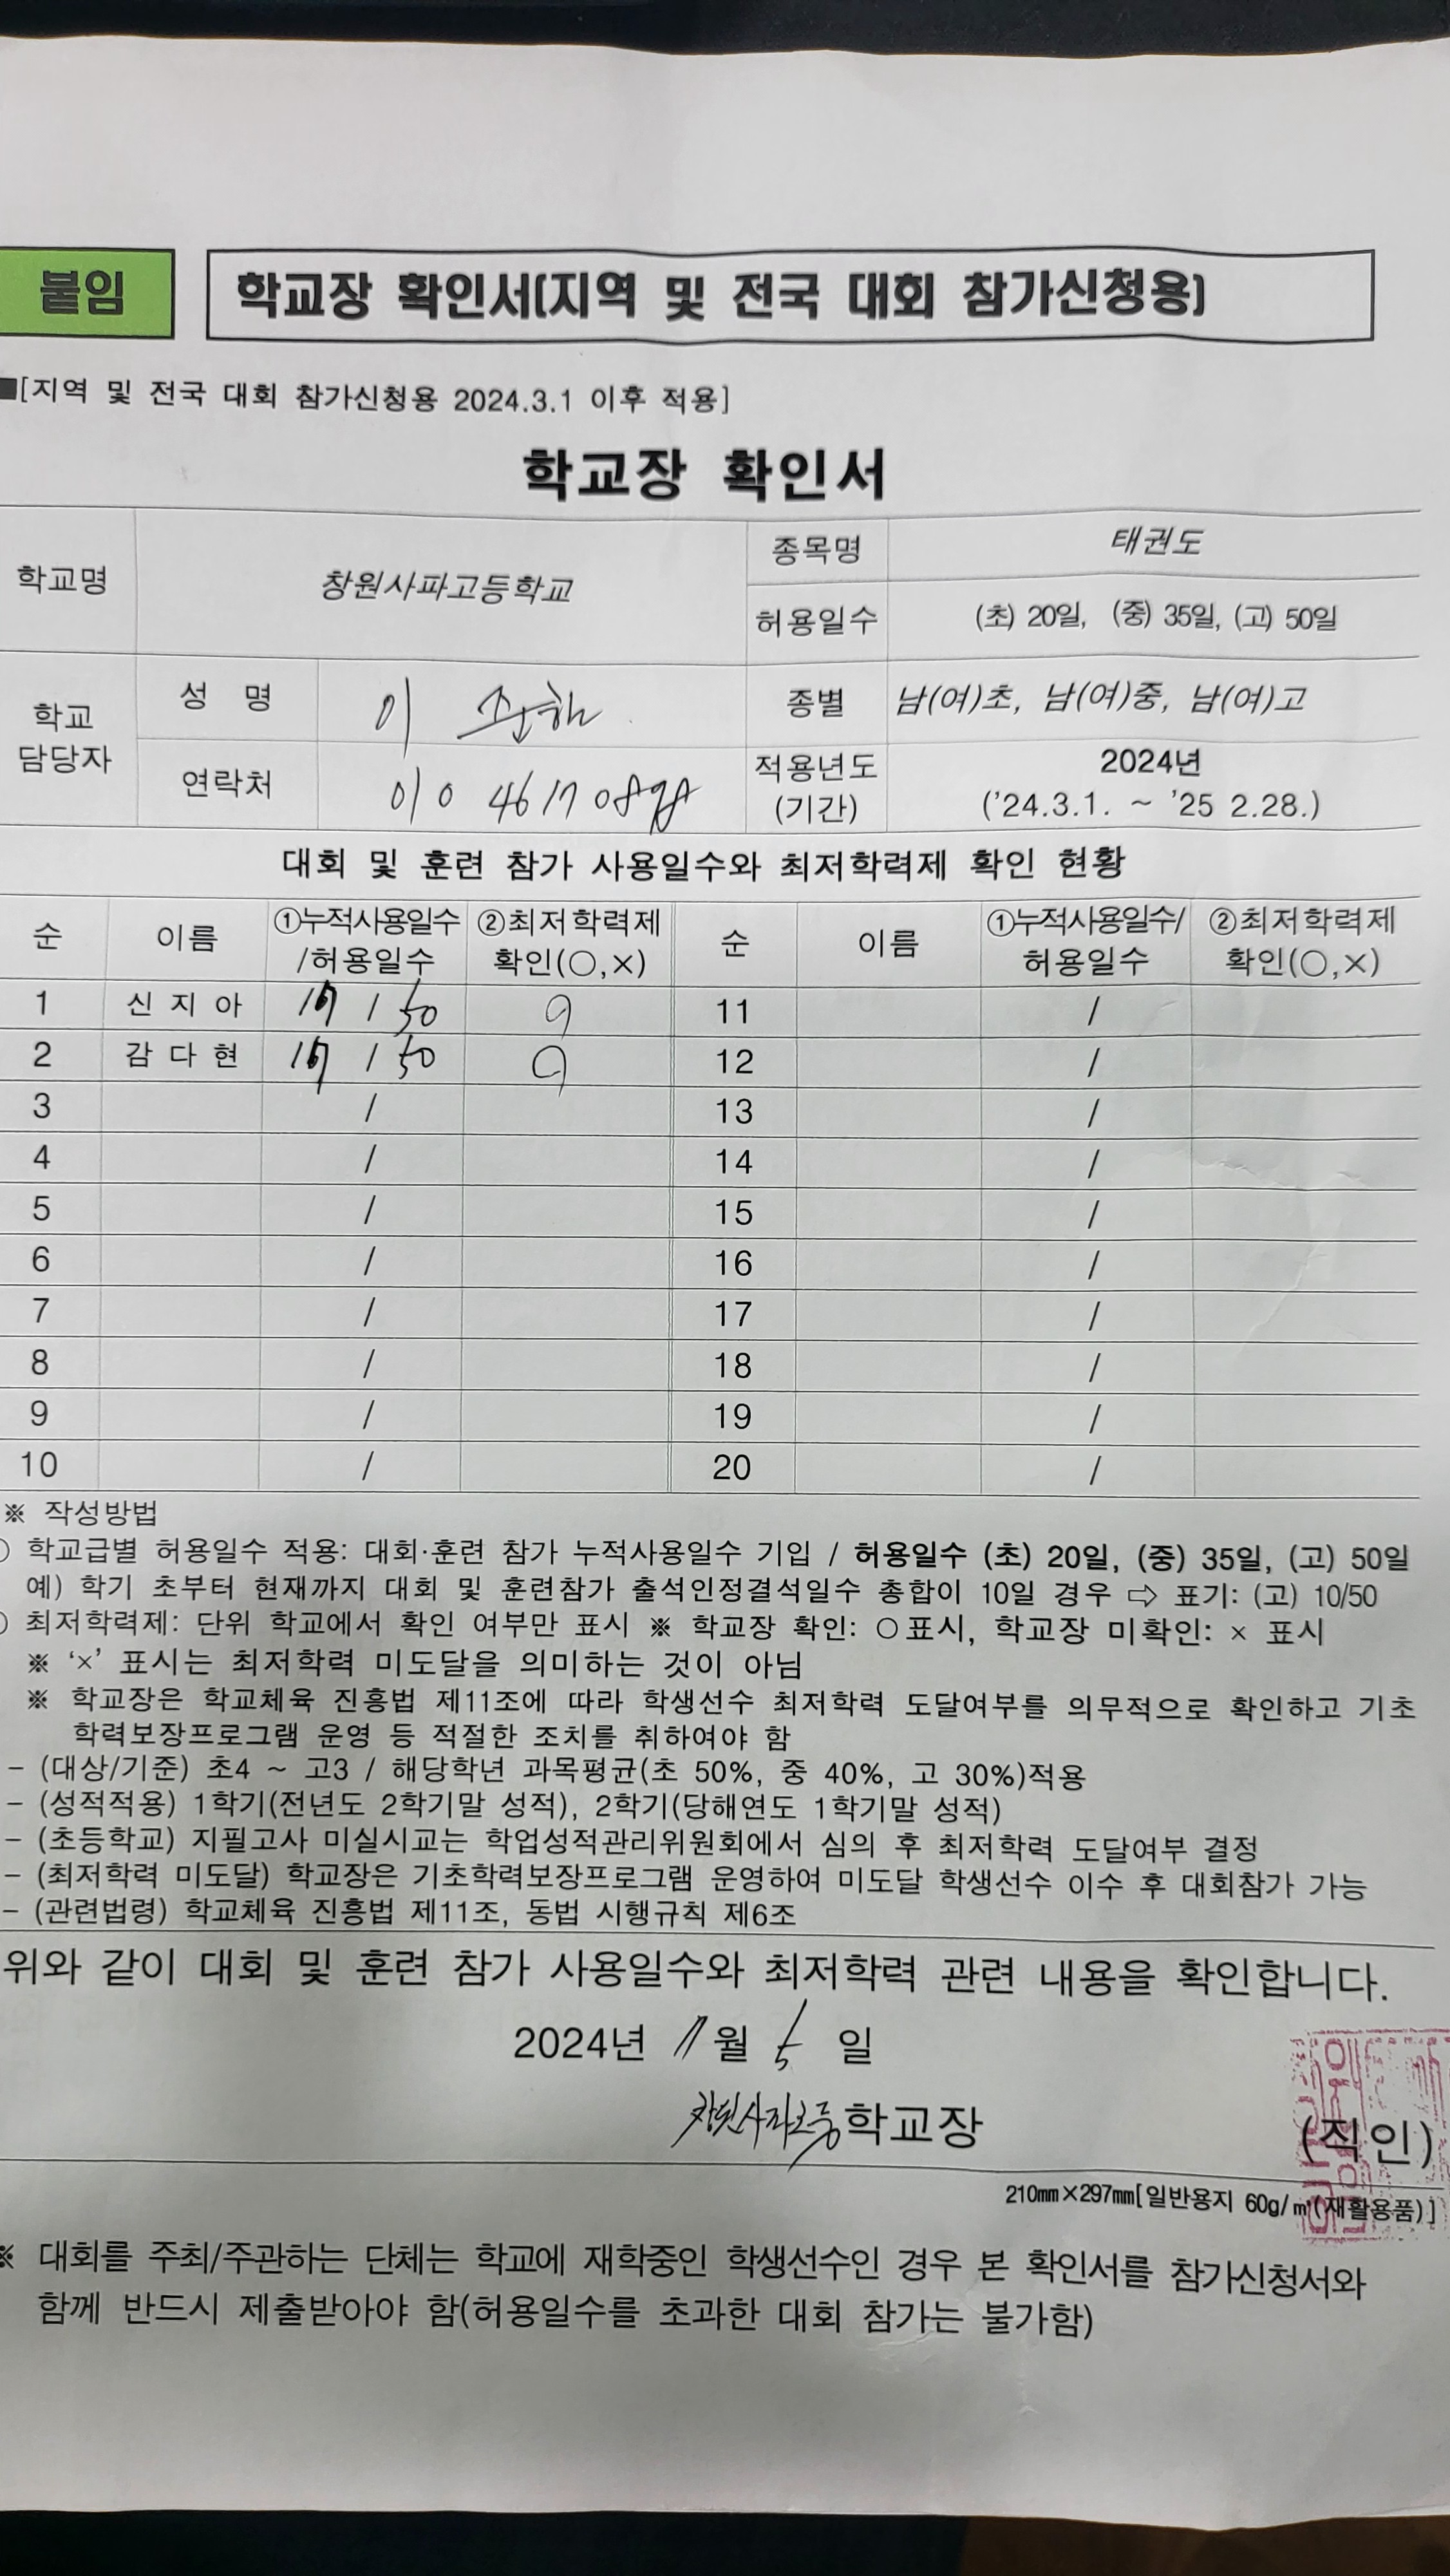 붙임
학교장 확인서(지역 및 전국 대회 참가신청용)
■[지역 및 전국 대회 참가신청용 2024.3.1 이후 적용]
학교장 확인서
학교명 창원사파고등학교 종목명 태권도
허용일수 (초) 20일, (중) 35일, (고) 50일
학교 담당자 성 명 이 종별 남(여)초, 남(여)중, 남(여)고
연락처 010 적용년도 (기간) 2024년 ('24.3.1. ~ '25 2.28.)
대회 및 훈련 참가 사용일수와 최저학력제 확인 현황
순 이름 ①누적사용일수 /허용일수 ②최저학력제 확인(○,×) 순 이름 ①누적사용일수/ 허용일수 ②최저학력제 확인(○,×)
1 신 지 아 / 50 ○ 11 /
2 감 다 현 / 50 ○ 12 /
3 / 13 /
4 / 14 /
5 / 15 /
6 / 16 /
7 / 17 /
8 / 18 /
9 / 19 /
10 / 20 /
※ 작성방법
학교급별 허용일수 적용: 대회·훈련 참가 누적사용일수 기입 / 허용일수 (초) 20일, (중) 35일, (고) 50일
예) 학기 초부터 현재까지 대회 및 훈련참가 출석인정결석일수 총합이 10일 경우 ⇨ 표기: (고) 10/50
최저학력제: 단위 학교에서 확인 여부만 표시 ※ 학교장 확인: ○표시, 학교장 미확인: × 표시
※ '×' 표시는 최저학력 미도달을 의미하는 것이 아님
※ 학교장은 학교체육 진흥법 제11조에 따라 학생선수 최저학력 도달여부를 의무적으로 확인하고 기초
학력보장프로그램 운영 등 적절한 조치를 취하여야 함
- (대상/기준) 초4 ~ 고3 / 해당학년 과목평균(초 50%, 중 40%, 고 30%)적용
- (성적적용) 1학기(전년도 2학기말 성적), 2학기(당해연도 1학기말 성적)
- (초등학교) 지필고사 미실시교는 학업성적관리위원회에서 심의 후 최저학력 도달여부 결정
- (최저학력 미도달) 학교장은 기초학력보장프로그램 운영하여 미도달 학생선수 이수 후 대회참가 가능
- (관련법령) 학교체육 진흥법 제11조, 동법 시행규칙 제6조
위와 같이 대회 및 훈련 참가 사용일수와 최저학력 관련 내용을 확인합니다.
2024년 11월 5 일
창원사파고등학교장 (직인)
210㎜×297㎜[일반용지 60g/㎡(재활용품)]
※ 대회를 주최/주관하는 단체는 학교에 재학중인 학생선수인 경우 본 확인서를 참가신청서와
함께 반드시 제출받아야 함(허용일수를 초과한 대회 참가는 불가함)